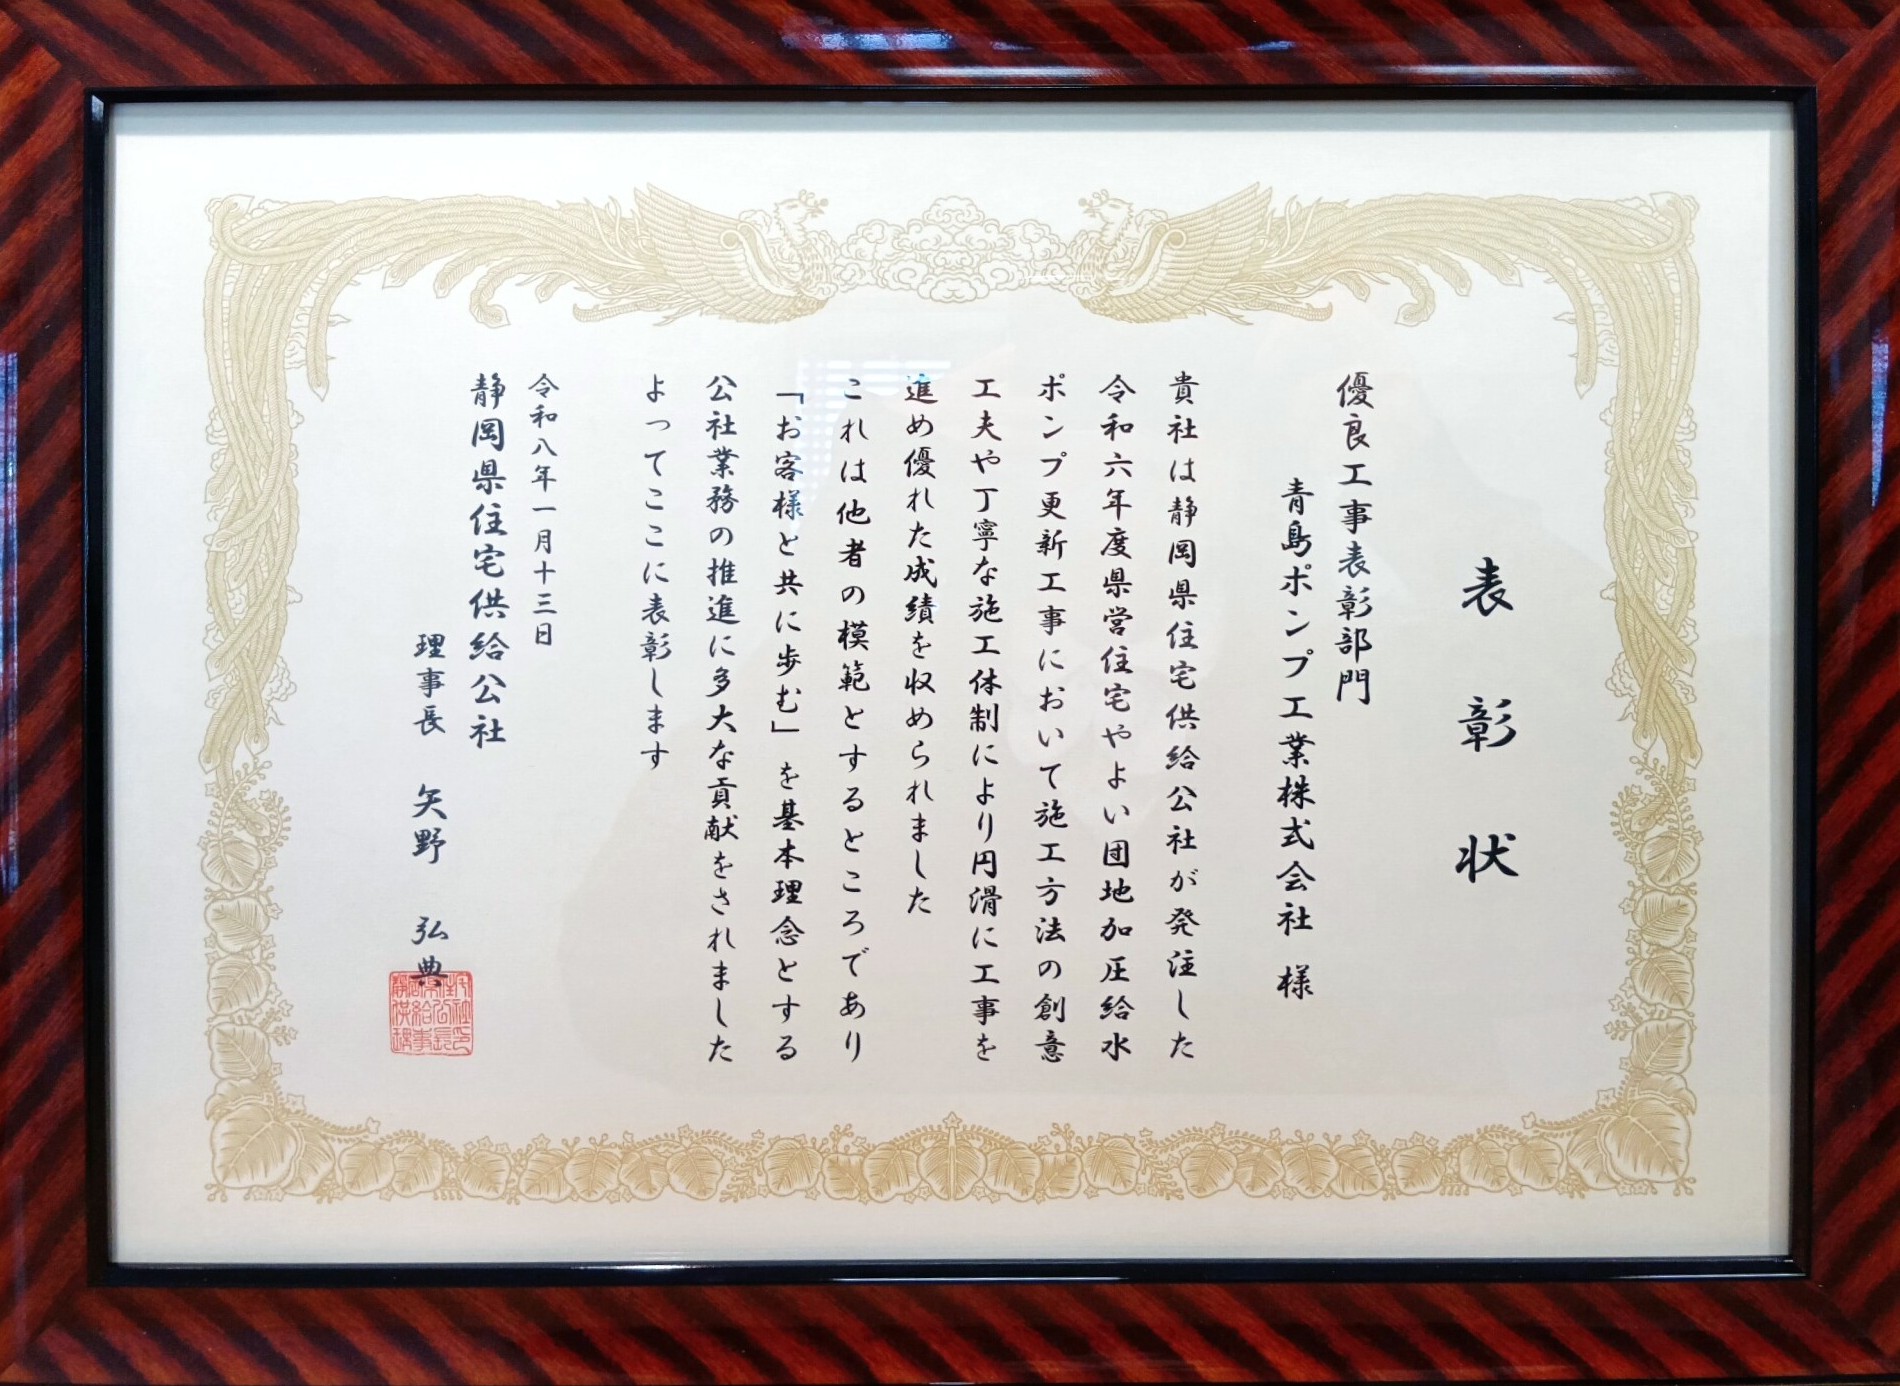 表彰状
優良工事表彰部門
青島ポンプ工業株式会社 様
貴社は静岡県住宅供給公社が発注した
令和六年度県営住宅やよい団地加圧給水
ポンプ更新工事において施工方法の創意
工夫や丁寧な施工体制により円滑に工事を
進め優れた成績を収められました
これは他者の模範とするところであり
「お客様と共に歩む」を基本理念とする
公社業務の推進に多大な貢献をされました
よってここに表彰します
令和八年一月十三日
静岡県住宅供給公社
理事長 矢野 弘典